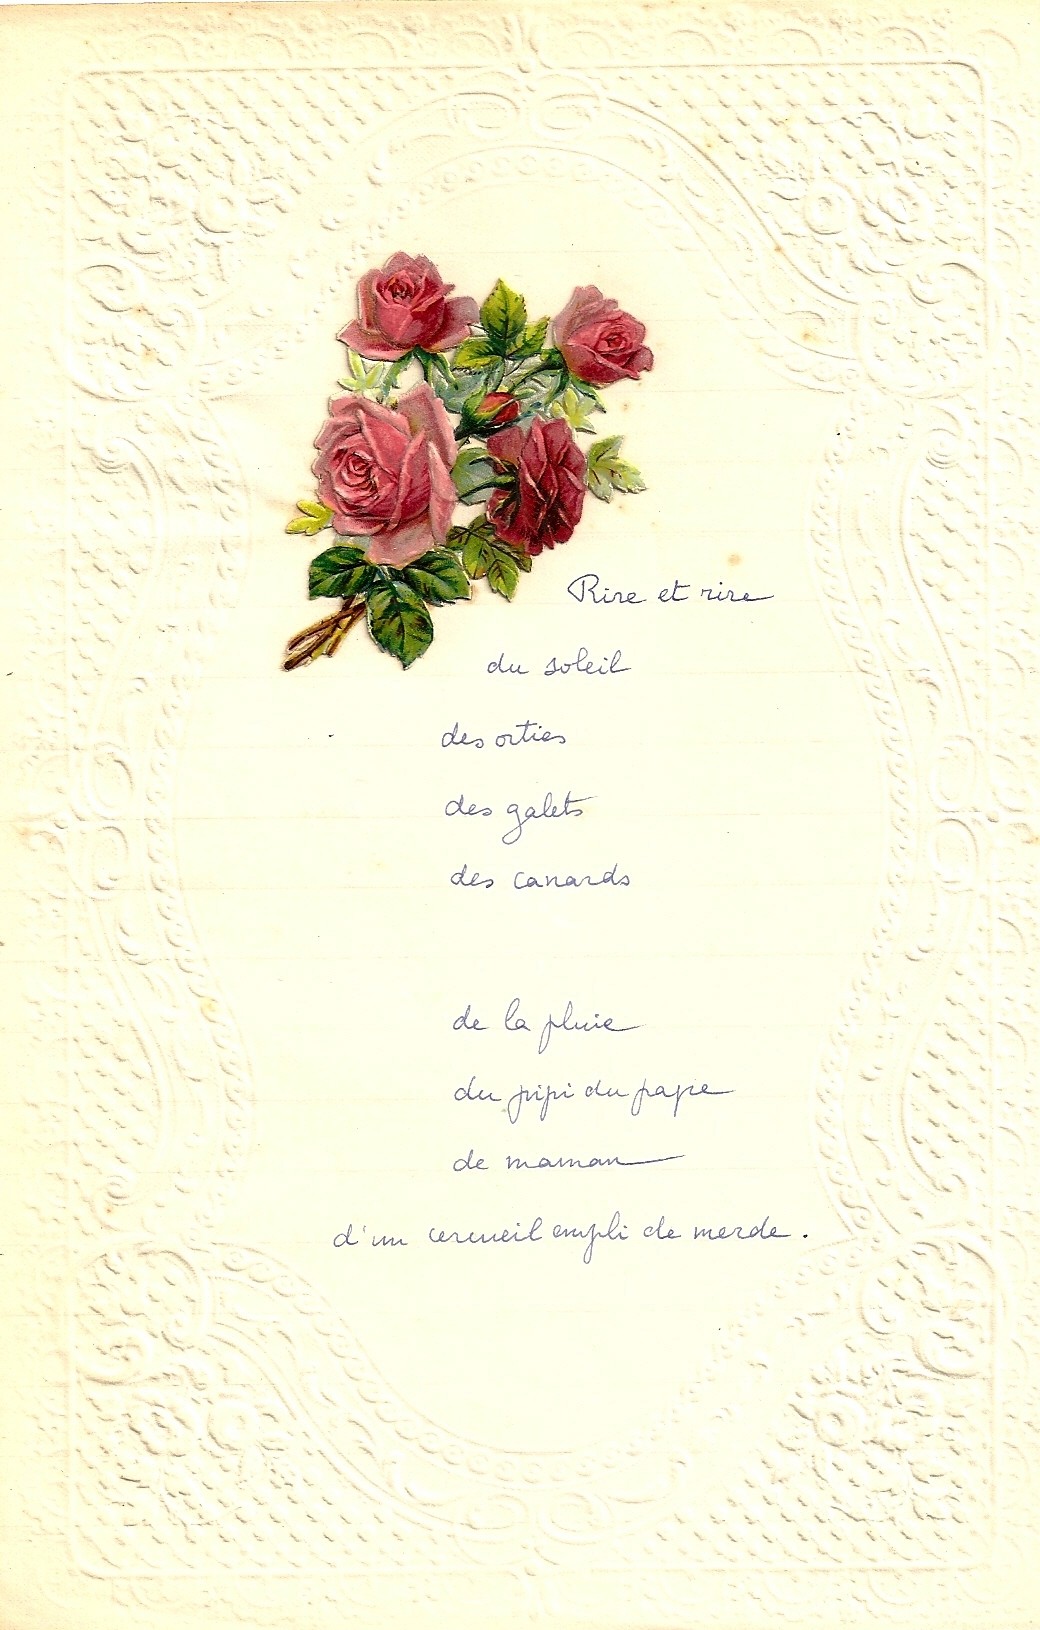 Rire et rire
du soleil
des orties
des galets
des canards
de la pluie
du pipi du pape
de maman
d'un cercueil empli de merde.